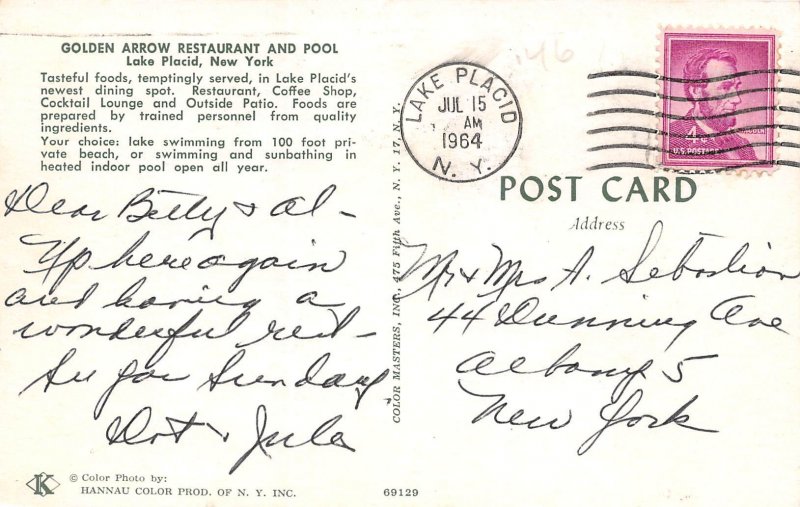 GOLDEN ARROW RESTAURANT AND POOL
Lake Placid, New York
Tasteful foods, temptingly served, in Lake Placid's
newest dining spot. Restaurant, Coffee Shop,
Cocktail Lounge and Outside Patio. Foods are
prepared by trained personnel from quality
ingredients.
Your choice: lake swimming from 100 foot pri-
vate beach, or swimming and sunbathing in
heated indoor pool open all year.
Dear Betty & Al -
Up here again
and having a
wonderful rest -
See you Sunday
Dot & Jule
© Color Photo by:
HANNAU COLOR PROD. OF N. Y. INC.
K
69129
COLOR MASTERS, INC., 475 Fifth Ave., N. Y. 17, N. Y.
146
LAKE PLACID
JUL 15
AM
1964
N. Y.
4¢
LINCOLN
U.S. POSTAGE
POST CARD
Address
Mr & Mrs A. Sebastian
44 Dunning Ave
Albany 5
New York